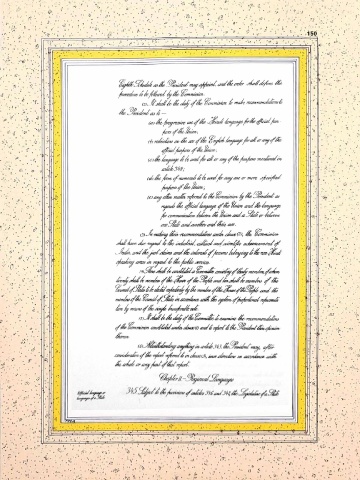 150
Eighth Schedule as the President may appoint, and the order shall define the
procedure to be followed by the Commission.
(2) It shall be the duty of the Commission to make recommendations to
the President as to —
(a) the progressive use of the Hindi language for the official pur-
poses of the Union;
(b) restrictions on the use of the English language for all or any of the
official purposes of the Union;
(c) the language to be used for all or any of the purposes mentioned in
article 348;
(d) the form of numerals to be used for any one or more specified
purposes of the Union;
(e) any other matter referred to the Commission by the President as
regards the official language of the Union and the language
for communication between the Union and a State or between
one State and another and their use.
(3) In making their recommendations under clause (2), the Commission
shall have due regard to the industrial, cultural and scientific advancement of
India, and the just claims and the interests of persons belonging to the non-Hindi
speaking areas in regard to the public services.
(4) There shall be constituted a Committee consisting of thirty members, of whom
twenty shall be members of the House of the People and ten shall be members of the
Council of States to be elected respectively by the members of the House of the People and the
members of the Council of States in accordance with the system of proportional representa-
tion by means of the single transferable vote.
(5) It shall be the duty of the Committee to examine the recommendations
of the Commission constituted under clause (1) and to report to the President their opinion
thereon.
(6) Notwithstanding anything in article 343, the President may, after
consideration of the report referred to in clause (5), issue directions in accordance with
the whole or any part of that report.
Chapter II — Regional Languages
Official language or
languages of a State.
345 Subject to the provisions of articles 346 and 347, the Legislature of a State